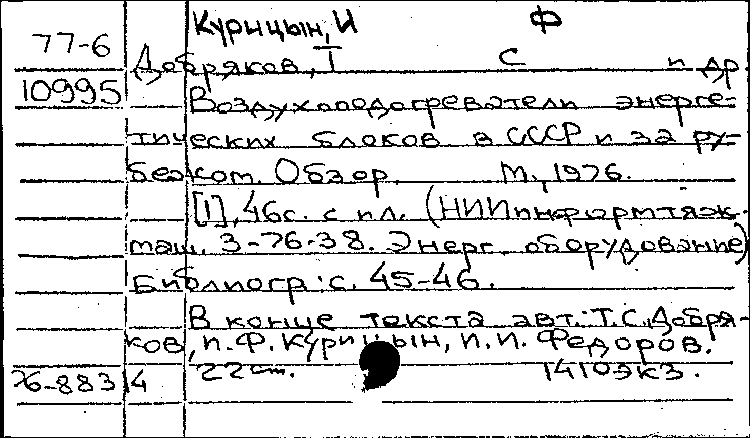 Курицын, И Ф
77-6
Добряков, Т С и др.
10995
Воздухоподогреватели энерге-
тических блоков в СССР и за ру-
бежом. Обзор. М., 1976.
[1], 46с. с ил. (НИИинформтяж-
маш. 3-76-38. Энерг. оборудование)
Библиогр.: с. 45-46.
В конце текста авт.: Т.С. Добря-
ков, И.Ф. Курицын, И.И. Федоров.
76-8834 22см. 1410экз.